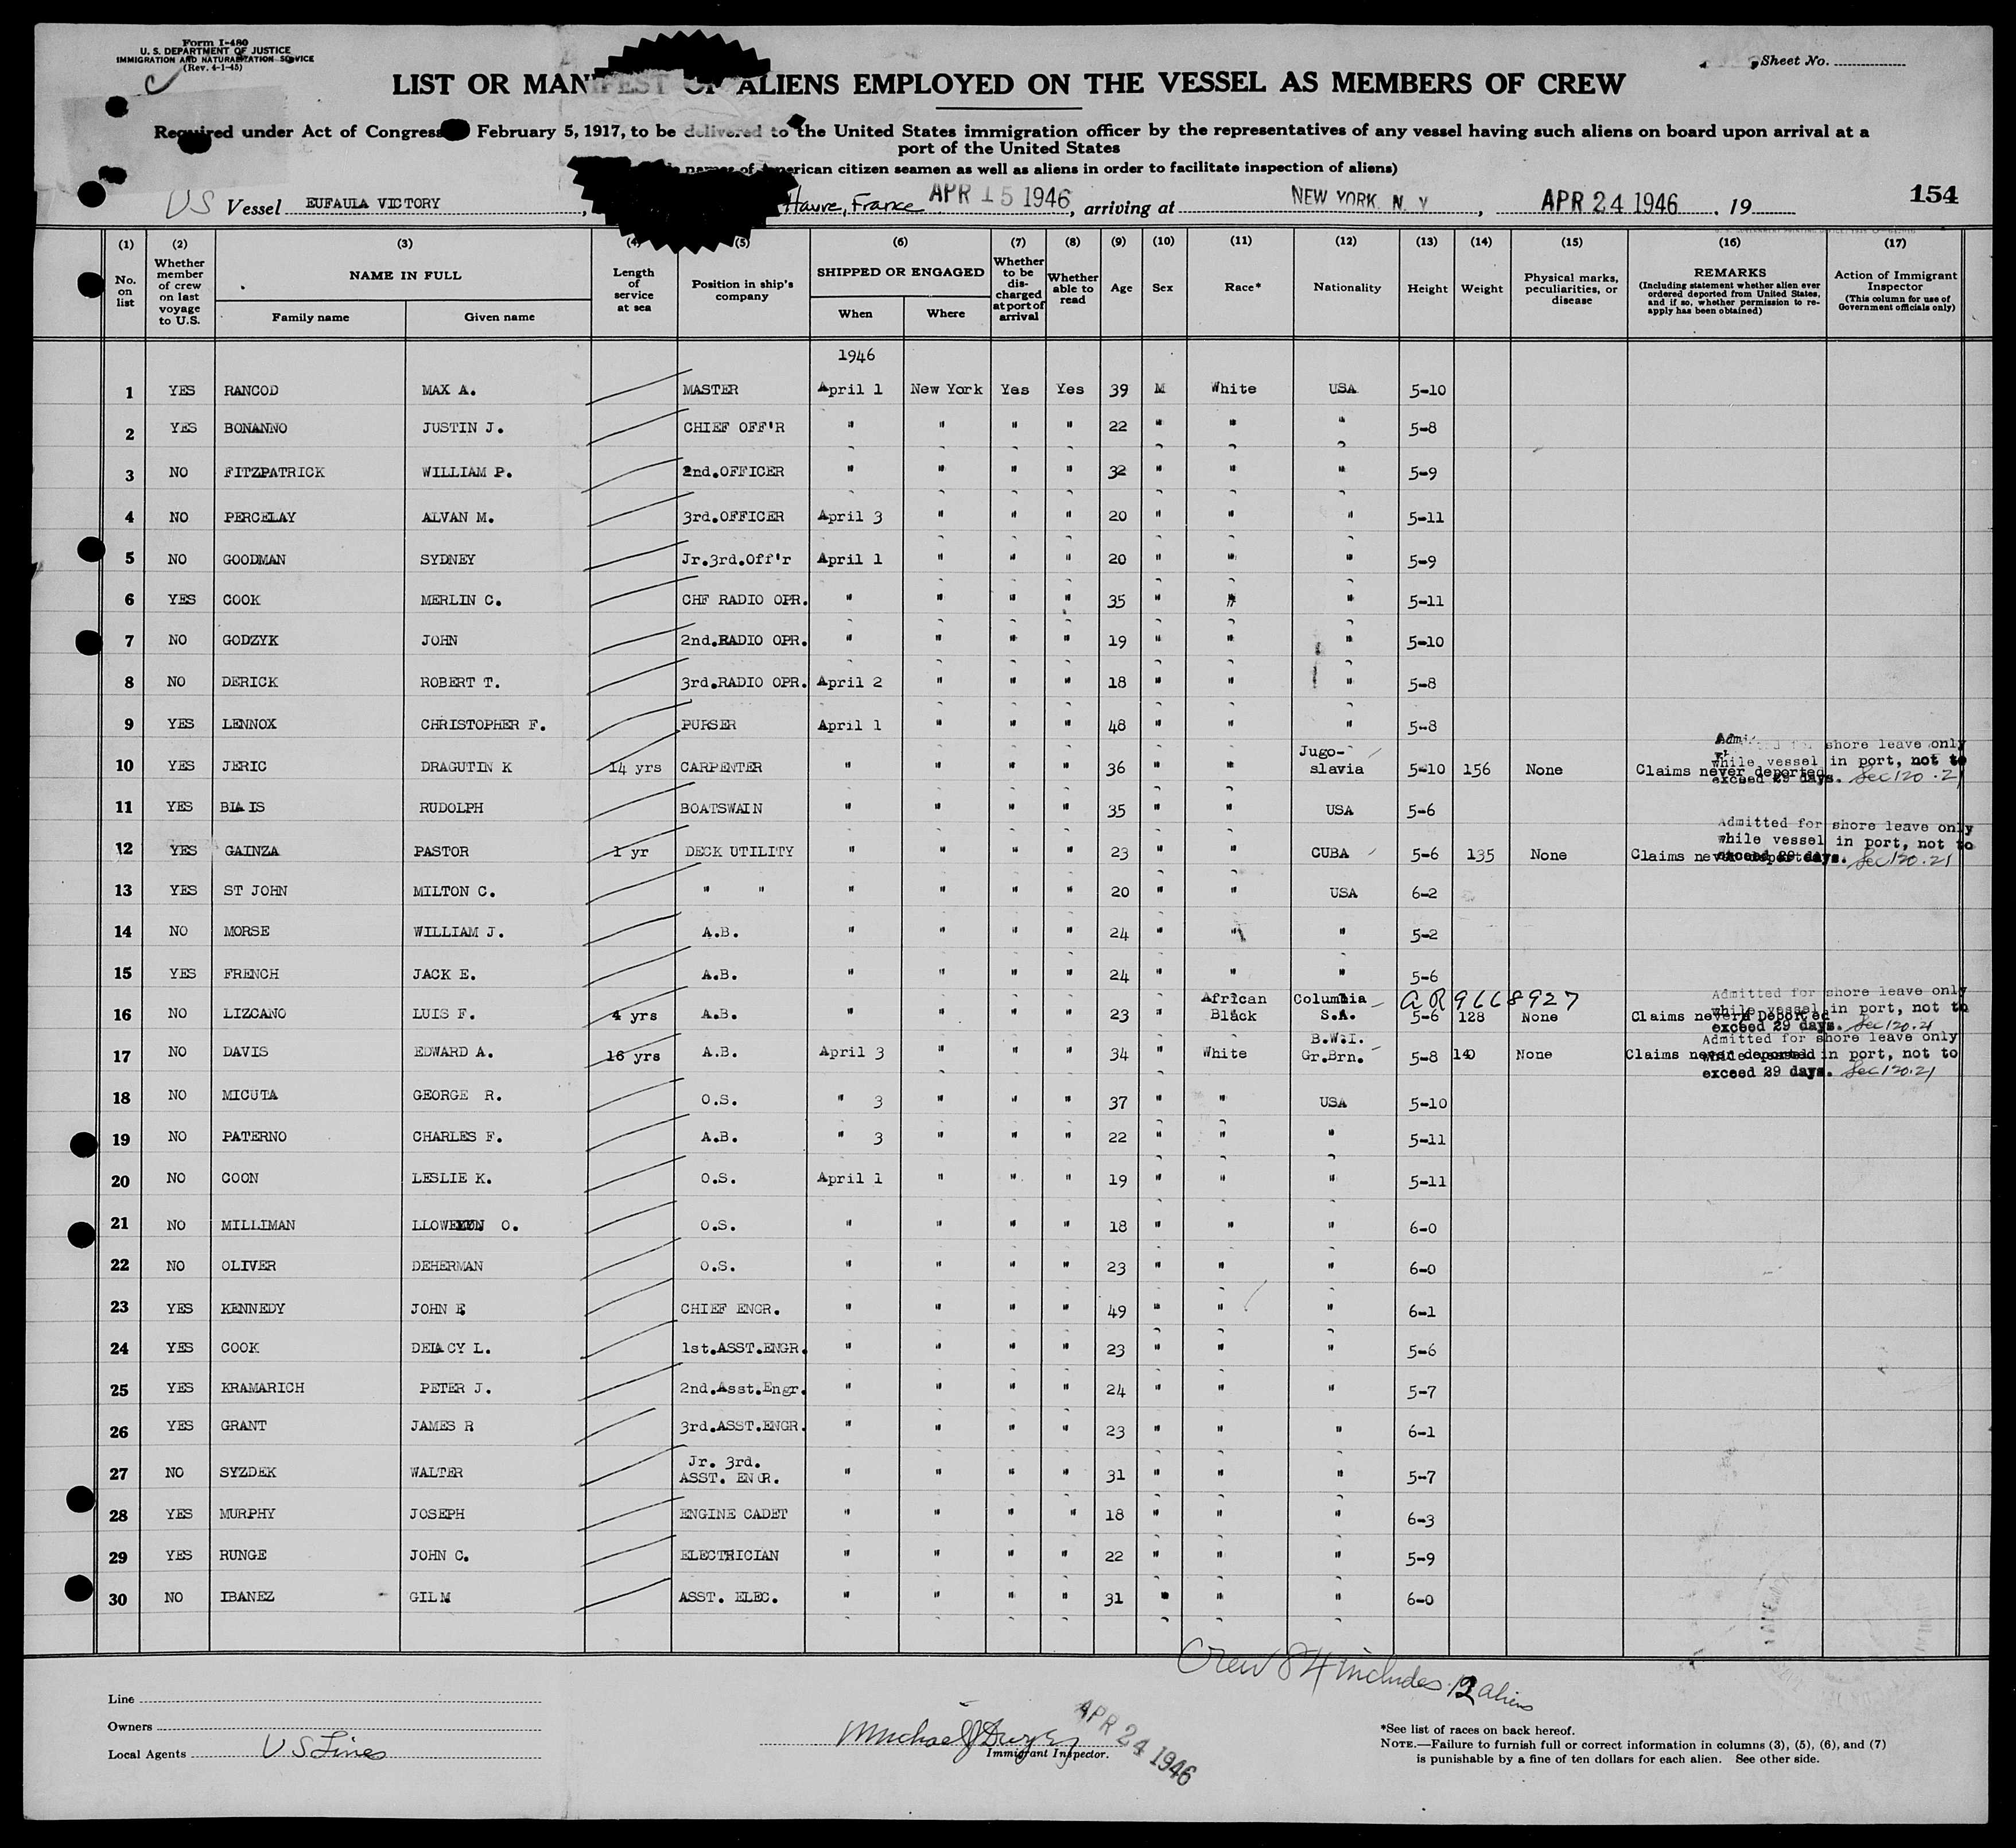 Form I-480
U. S. DEPARTMENT OF JUSTICE
IMMIGRATION AND NATURALIZATION SERVICE
(Rev. 4-1-45)
Sheet No.
LIST OR MANIFEST OF ALIENS EMPLOYED ON THE VESSEL AS MEMBERS OF CREW
Required under Act of Congress February 5, 1917, to be delivered to the United States immigration officer by the representatives of any vessel having such aliens on board upon arrival at a
port of the United States
names of American citizen seamen as well as aliens in order to facilitate inspection of aliens)
US Vessel EUFAULA VICTORY, Havre, France APR 15 1946, arriving at NEW YORK N. Y, APR 24 1946, 19 154
(1) (2) (3) (4) (5) (6) (7) (8) (9) (10) (11) (12) (13) (14) (15) (16) (17)
No. on list Whether member of crew on last voyage to U.S. NAME IN FULL Family name Given name Length of service at sea Position in ship's company SHIPPED OR ENGAGED When Where Whether to be discharged at port of arrival Whether able to read Age Sex Race* Nationality Height Weight Physical marks, peculiarities, or disease REMARKS (Including statement whether alien ever ordered deported from United States, and if so, whether permission to reapply has been obtained) Action of Immigrant Inspector (This column for use of Government officials only)
1946
1 YES RANCOD MAX A. MASTER April 1 New York Yes Yes 39 M White USA 5-10
2 YES BONANNO JUSTIN J. CHIEF OFF'R " " " " 22 " " " 5-8
3 NO FITZPATRICK WILLIAM P. 2nd.OFFICER " " " " 32 " " " 5-9
4 NO PERCELAY ALVAN M. 3rd.OFFICER April 3 " " " 20 " " " 5-11
5 NO GOODMAN SYDNEY Jr.3rd.Off'r April 1 " " " 20 " " " 5-9
6 YES COOK MERLIN C. CHF RADIO OPR. " " " " 35 " " " 5-11
7 NO GODZYK JOHN 2nd.RADIO OPR. " " " " 19 " " " 5-10
8 NO DERICK ROBERT T. 3rd.RADIO OPR. April 2 " " " 18 " " " 5-8
9 YES LENNOX CHRISTOPHER F. PURSER April 1 " " " 48 " " " 5-8
10 YES JERIC DRAGUTIN K 14 yrs CARPENTER " " " " 36 " " Jugo-slavia 5-10 156 None Claims never deported Admitted for shore leave only while vessel in port, not to exceed 29 days. Sec 120.21
11 YES BLAIS RUDOLPH BOATSWAIN " " " " 35 " " USA 5-6
12 YES GAINZA PASTOR 1 yr DECK UTILITY " " " " 23 " " CUBA 5-6 135 None Claims never deported Admitted for shore leave only while vessel in port, not to exceed 29 days. Sec 120.21
13 YES ST JOHN MILTON C. " " " " " " 20 " " USA 6-2
14 NO MORSE WILLIAM J. A.B. " " " " 24 " " " 5-2
15 YES FRENCH JACK E. A.B. " " " " 24 " " " 5-6
16 NO LIZCANO LUIS F. 4 yrs A.B. " " " " 23 " African Black Columbia S.A. AR 9668927 5-6 128 None Claims never Deported Admitted for shore leave only while vessel in port, not to exceed 29 days. Sec 120.21
17 NO DAVIS EDWARD A. 16 yrs A.B. April 3 " " " 34 " White B.W.I. Gr.Brn. 5-8 140 None Claims never deported Admitted for shore leave only while vessel in port, not to exceed 29 days. Sec 120.21
18 NO MICUTA GEORGE R. O.S. " 3 " " " 37 " " USA 5-10
19 NO PATERNO CHARLES F. A.B. " 3 " " " 22 " " " 5-11
20 NO COON LESLIE K. O.S. April 1 " " " 19 " " " 5-11
21 NO MILLIMAN O. O.S. " " " " 18 " " " 6-0
22 NO OLIVER DEHERMAN O.S. " " " " 23 " " " 6-0
23 YES KENNEDY JOHN E CHIEF ENGR. " " " " 49 " " " 6-1
24 YES COOK DELACY L. 1st.ASST.ENGR. " " " " 23 " " " 5-6
25 YES KRAMARICH PETER J. 2nd.Asst.Engr. " " " " 24 " " " 5-7
26 YES GRANT JAMES R 3rd.ASST.ENGR. " " " " 23 " " " 6-1
27 NO SYZDEK WALTER Jr. 3rd. ASST. ENGR. " " " " 31 " " " 5-7
28 YES MURPHY JOSEPH ENGINE CADET " " " " 18 " " " 6-3
29 YES RUNGE JOHN C. ELECTRICIAN " " " " 22 " " " 5-9
30 NO IBANEZ GIL M ASST. ELEC. " " " " 31 " " " 6-0
Crew 84 includes 12 aliens
Line
Owners
Local Agents U S Lines
Michael J Dwyer
Immigrant Inspector.
APR 24 1946
*See list of races on back hereof.
NOTE.—Failure to furnish full or correct information in columns (3), (5), (6), and (7)
is punishable by a fine of ten dollars for each alien. See other side.